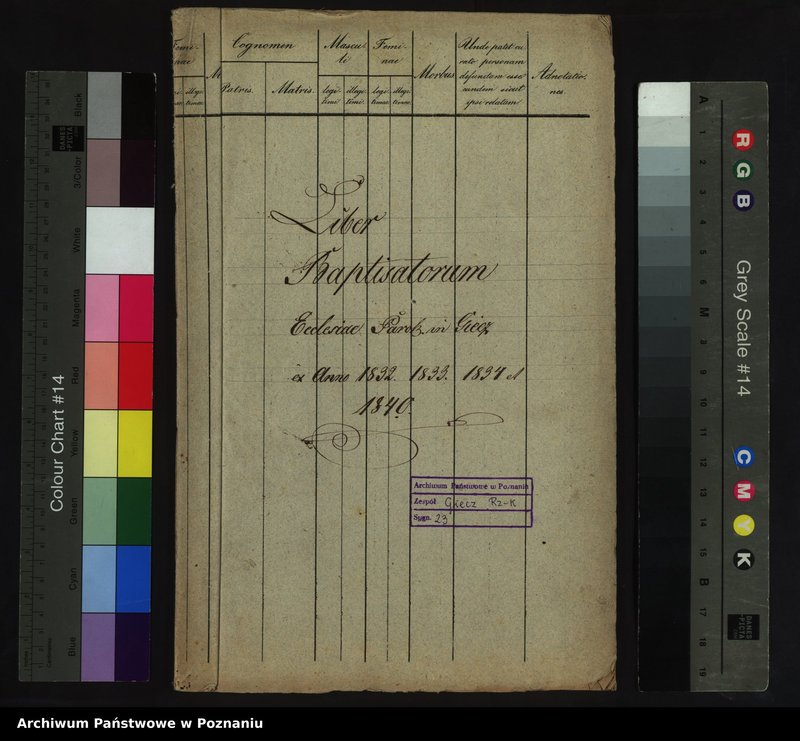 Cognomen
Patris.
Matris.
Mascu-
li
legi-
timi
illegi-
timi.
Femi-
nae
legi-
timae
illegi-
timae.
Morbus
Unde patet cu-
rato personam
defunctam esse
eundem sicut
ipsi relatam
Adnotatio-
nes.
Liber
Baptisatorum
Ecclesiae Paroch. in Giecz
ex Anno 1832. 1833. 1834 et
1840.
Archiwum Państwowe w Poznaniu
Zespół Giecz Rz-K
Sygn. 23
Colour Chart #14
Black
3/Color
White
Magenta
Red
Yellow
Green
Cyan
Blue
DANES
PICTA
Grey Scale #14
R
G
B
C
M
Y
K
A
1
2
3
4
5
6
M
8
9
10
11
12
13
14
15
B
17
18
19
DANES
PICTA
Archiwum Państwowe w Poznaniu